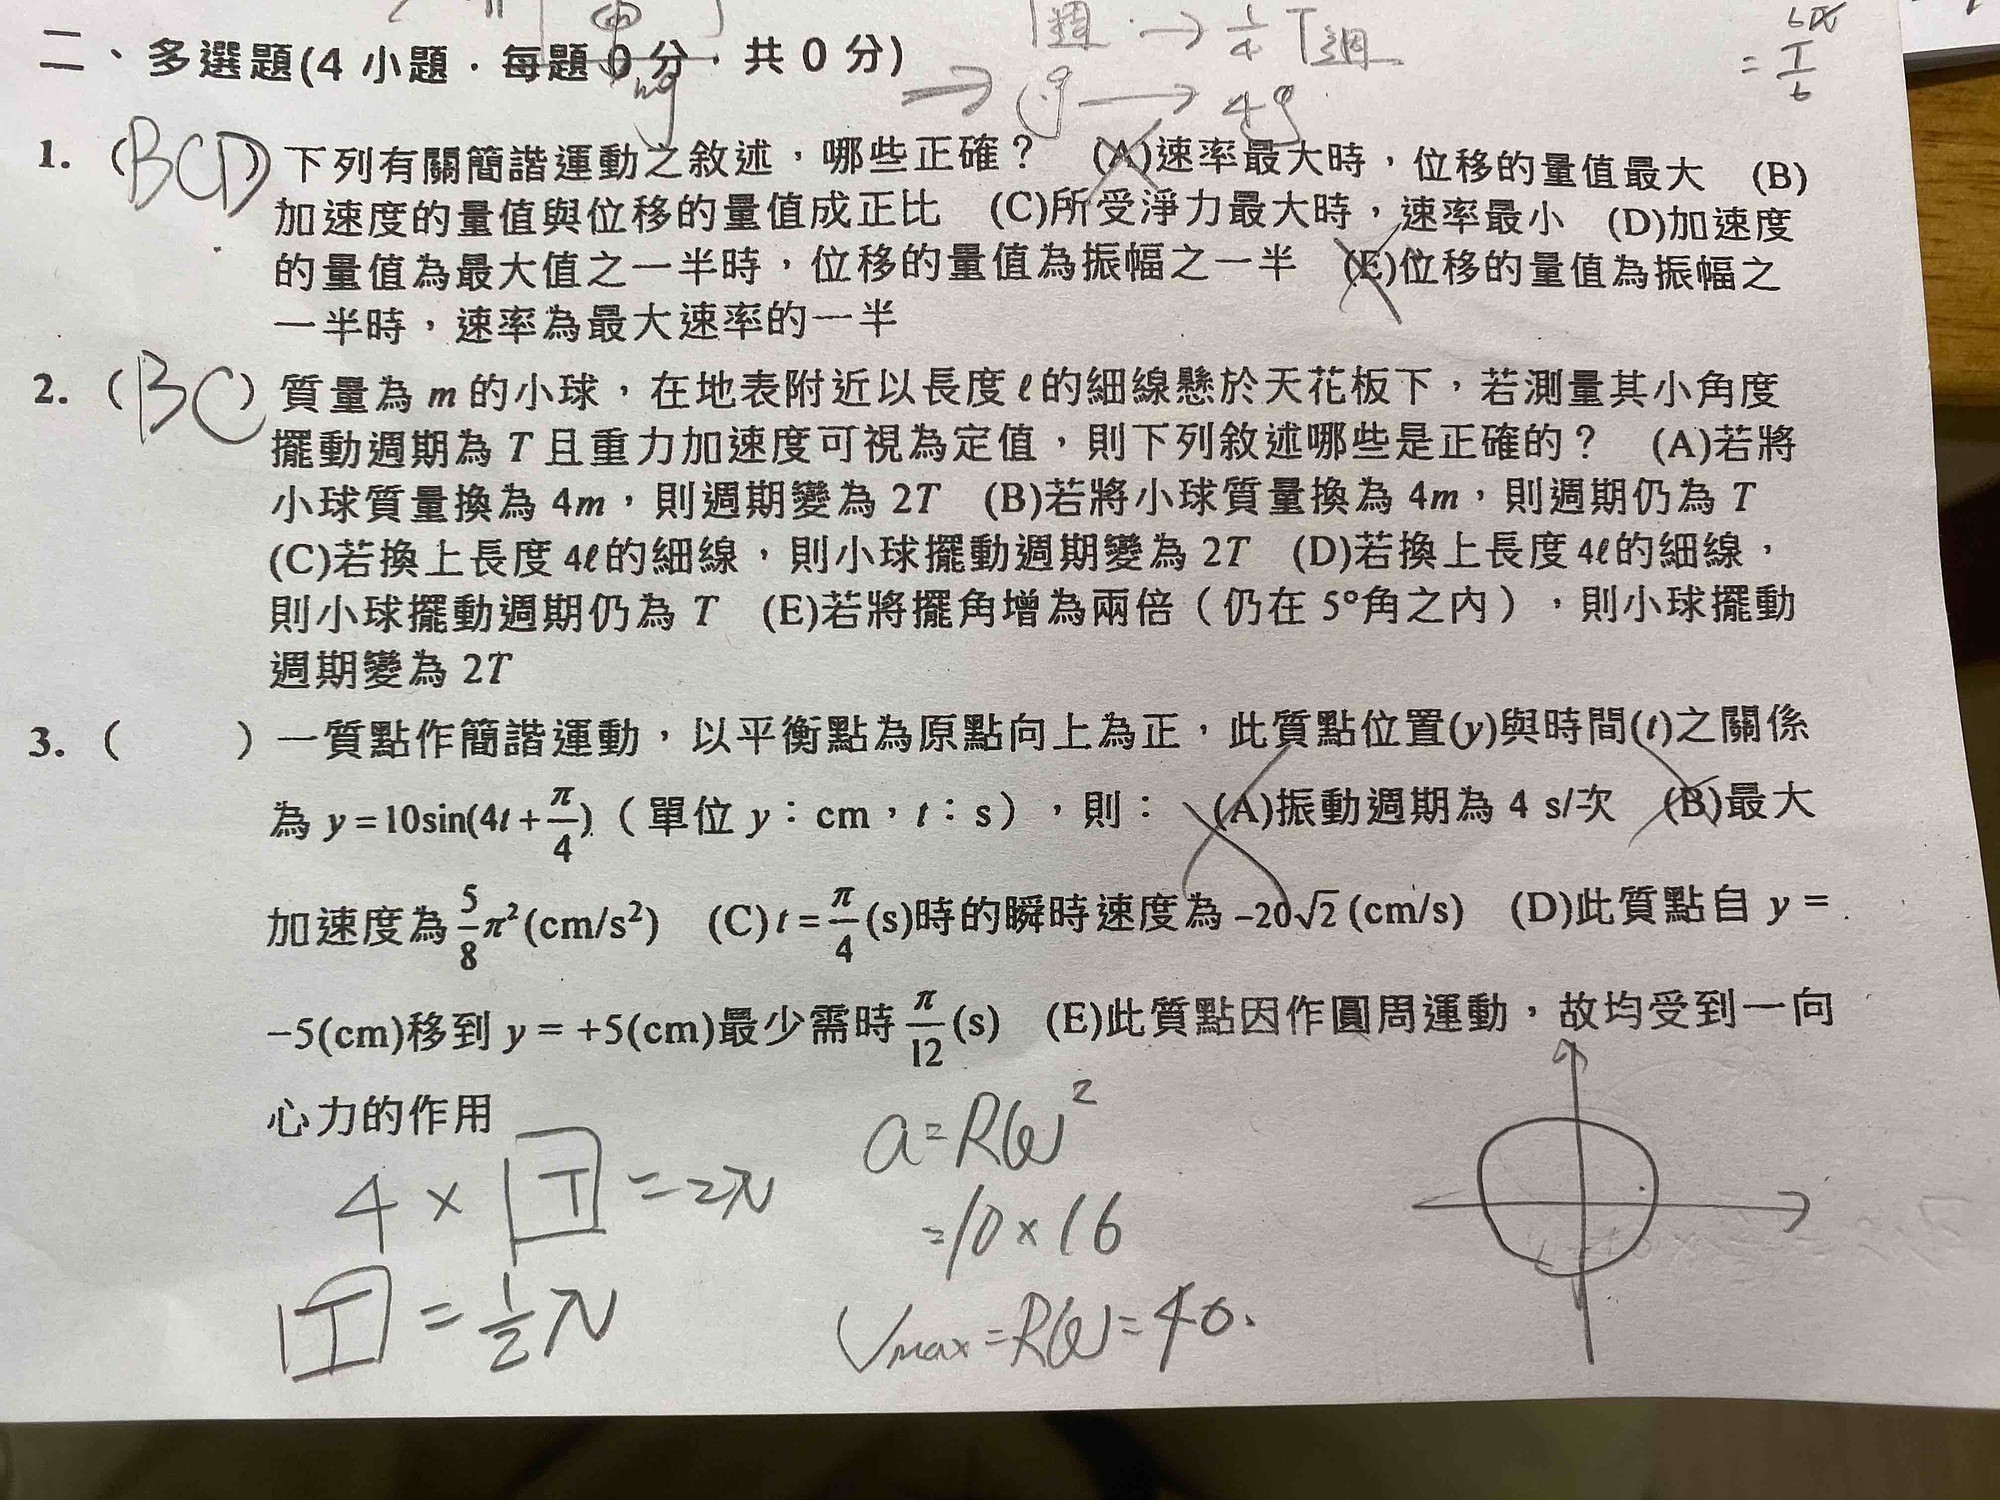 週 → 1/4 T週
→ g → 4g
二、多選題(4 小題．每題 0 分．共 0 分)
mg
1. (BCD) 下列有關簡諧運動之敘述，哪些正確？ (A)速率最大時，位移的量值最大 (B)
加速度的量值與位移的量值成正比 (C)所受淨力最大時，速率最小 (D)加速度
的量值為最大值之一半時，位移的量值為振幅之一半 (E)位移的量值為振幅之
一半時，速率為最大速率的一半
2. (BC) 質量為 m 的小球，在地表附近以長度 ℓ 的細線懸於天花板下，若測量其小角度
擺動週期為 T 且重力加速度可視為定值，則下列敘述哪些是正確的？ (A)若將
小球質量換為 4m，則週期變為 2T (B)若將小球質量換為 4m，則週期仍為 T
(C)若換上長度 4ℓ 的細線，則小球擺動週期變為 2T (D)若換上長度 4ℓ 的細線，
則小球擺動週期仍為 T (E)若將擺角增為兩倍（仍在 5°角之內），則小球擺動
週期變為 2T
3. ( ) 一質點作簡諧運動，以平衡點為原點向上為正，此質點位置(y)與時間(t)之關係
為 y = 10sin(4t + π/4)（單位 y：cm，t：s），則： (A)振動週期為 4 s/次 (B)最大
加速度為 5/8 π²(cm/s²) (C) t = π/4 (s)時的瞬時速度為 −20√2 (cm/s) (D)此質點自 y =
−5(cm)移到 y = +5(cm)最少需時 π/12 (s) (E)此質點因作圓周運動，故均受到一向
心力的作用
4 × T = 2π
T = 1/2 π
a = Rω²
= 10 × 16
Vmax = Rω = 40.